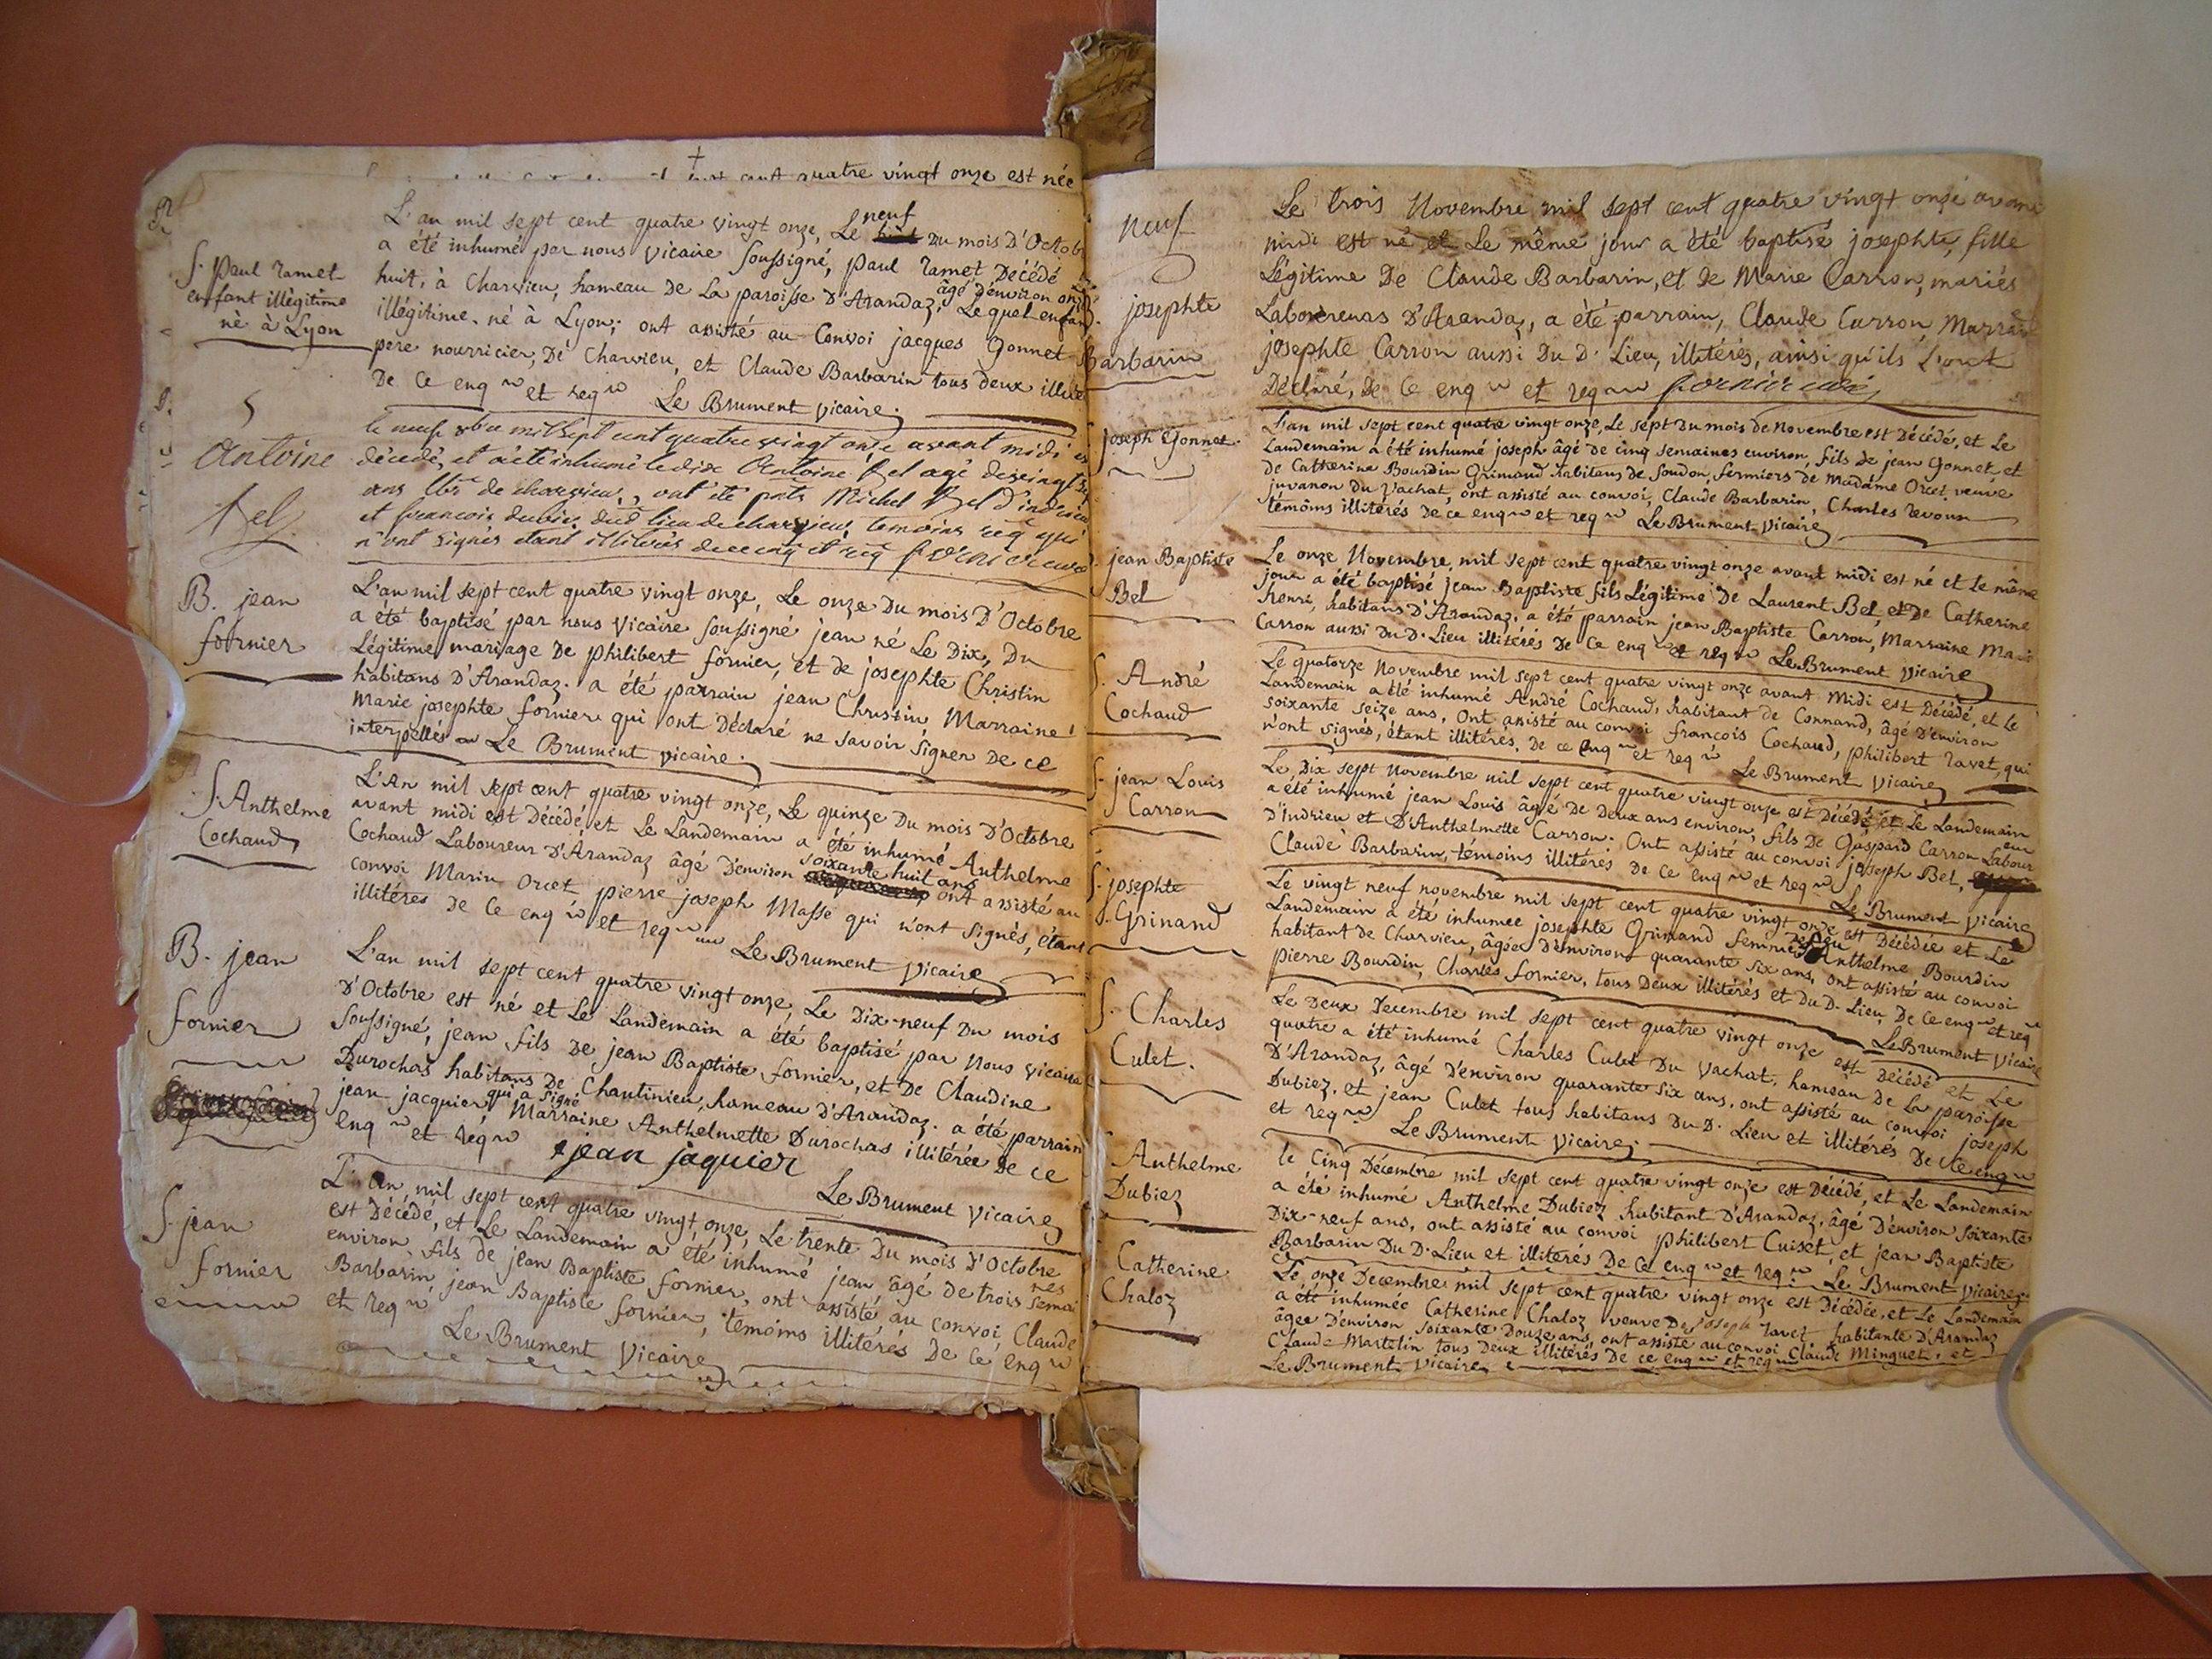 quatre vingt onze est née
S. paul ramet
enfant illégitime
né à Lyon
L'an mil sept cent quatre vingt onze, Le neuf Du mois D'Octob
a été inhumé par nous vicaire soussigné, paul ramet Décédé Le
huit, à Charvieu, hameau De La paroisse D'Arandaz, âgé D'environ onze
illégitime, né à Lyon; ont assisté au Convoi jacques Gonnet
pere nourricier, De Charvieu, et Claude Barbarin tous deux illité
De Ce enq et req Le Brument vicaire.
5
Antoine
Bel
le neuf 8bre mil sept cent quatre vingt onze avant midi est
décedé, et a été inhumé le dix Antoine Bel agé de
ans de charvieu, ont été pnts Michel Bel d'indrieu
et francois dubiez dud. lieu de charvieu temoins req qui
n'ont signés etant illitérés de ce enq et req fornier curé
B. jean
fornier
L'an mil sept cent quatre vingt onze, Le onze Du mois D'Octobre
a été baptisé par nous vicaire soussigné jean né Le Dix, Du
Légitime mariage De philibert fornier, et de josephte Christin
habitans D'Arandaz. a été parrain jean Christin, Marraine
Marie josephte fornier qui ont Déclaré ne savoir signer De ce
interpellés Le Brument vicaire.
S. Anthelme
Cochaud
L'An mil sept cent quatre vingt onze, Le quinze Du mois D'Octobre
avant midi est Décédé et Le Landemain a été inhumé Anthelme
Cochaud Laboureur D'Arandaz âgé D'environ soixante huit ans ont assisté au
convoi Marin Orcet pierre joseph Massé qui n'ont signés, étant
illitérés De Ce enq et req Le Brument vicaire
B. jean
fornier
L'an mil sept cent quatre vingt onze, Le Dix-neuf Du mois
D'Octobre est né et Le Landemain a été baptisé par Nous vicaire
soussigné, jean fils De jean Baptiste fornier, et De Claudine
Durochas habitans De Chantinieu, hameau d'Arandaz. a été parrain
jean jacquier qui a signé Marraine Anthelmette Durochas illitérée De ce
enq et réq jean jaquier
Le Brument vicaire
S. jean
fornier
L'an mil sept cent quatre vingt onze, Le trente Du mois D'Octobre
est Décédé, et Le Landemain a été inhumé jean âgé de trois semaines
environ, fils de jean Baptiste fornier, ont assisté au convoi Claude
Barbarin, jean Baptiste fornier, témoins illitérés De Ce enq
et req
Le Brument vicaire
neuf
josephte
Barbarin
Le trois Novembre mil sept cent quatre vingt onze avant
midi est né et Le même jour a été baptisé josephte, fille
Légitime De Claude Barbarin, et de Marie Carron, mariés
Laboureurs D'Arandaz, a été parrain, Claude Carron, Marraine
josephte Carron aussi Du D. Lieu, illitérés, ainsi qu'ils L'ont
Déclaré, De Ce enq et req fornier curé
joseph Gonnet
L'an mil sept cent quatre vingt onze, Le sept Du mois de Novembre est Décédé, et Le
Landemain a été inhumé joseph âgé de cinq semaines environ, fils de jean Gonnet, et
de Catherine Bourdin Grimand habitans de soudon, fermiers de Madame Orcet veuve
juvanon du vachat, ont assisté au convoi, Claude Barbarin, Charles revoux
témoins illitérés De ce enq et req Le Brument vicaire
jean Baptiste
Bel
Le onze Novembre, mil sept cent quatre vingt onze avant midi est né et le même
jour a été baptisé jean Baptiste fils Légitime De Laurent Bel, et De Catherine
henri, habitans D'Arandaz. a été parrain jean Baptiste Carron, Marraine
Carron aussi Du D. Lieu illitérés De Ce enq et req Le Brument vicaire
S. André
Cochaud
Le quatorze Novembre mil sept cent quatre vingt onze avant Midi est Décédé, et Le
Landemain a été inhumé André Cochaud, habitant de Connand, âgé D'environ
soixante seize ans, Ont assisté au convoi francois Cochaud, philibert ravet, qui
n'ont signés, étant illitérés. De ce enq et req Le Brument vicaire
S. jean Louis
Carron
Le Dix sept Novembre mil sept cent quatre vingt onze est Décédé, et Le Landemain
a été inhumé jean Louis âgé De Deux ans environ, fils De Gaspard Carron Laboureur
D'indrieu et D'Anthelmette Carron. Ont assisté au convoi joseph Bel,
Claude Barbarin, témoins illitérés De Ce enq et req Le Brument vicaire
S. josephte
Grinand
Le vingt neuf novembre mil sept cent quatre vingt onze est Décédée et Le
Landemain a été inhumee josephte Grinand femme Anthelme Bourdin
habitant de Charvieu, âgée D'environ quarante six ans, ont assisté au convoi
pierre Bourdin, Charles fornier, tous Deux illitérés et Du D. Lieu De Ce enq et req
Le Brument vicaire
S. Charles
Culet.
Le Deux Decembre mil sept cent quatre vingt onze est Décédé et Le
quatre a été inhumé Charles Culet Du vachat, hameau De La paroisse
D'Arandaz, âgé D'environ quarante six ans, ont assisté au convoi joseph
Dubiez, et jean Culet tous habitans Du D. Lieu et illitérés De Ce enq
et req Le Brument vicaire.
Anthelme
Dubiez
le Cinq Décembre mil sept cent quatre vingt onze est Décédé, et Le Landemain
a été inhumé Anthelme Dubiez habitant D'Arandaz, âgé D'environ soixante
Dix-neuf ans, ont assisté au convoi philibert Cuiset, et jean Baptiste
Barbarin Du D. Lieu et illitérés De Ce enq et req Le Brument vicaire
Catherine
Chaloz
Le onze Decembre mil sept cent quatre vingt onze est Décédée, et Le Landemain
a été inhumée Catherine Chaloz veuve De joseph ravet habitante D'Arandaz
âgée D'environ soixante Douze ans, ont assisté au convoi Claude Minguet, et
Claude Martelin tous Deux illitérés De ce enq et req
Le Brument vicaire